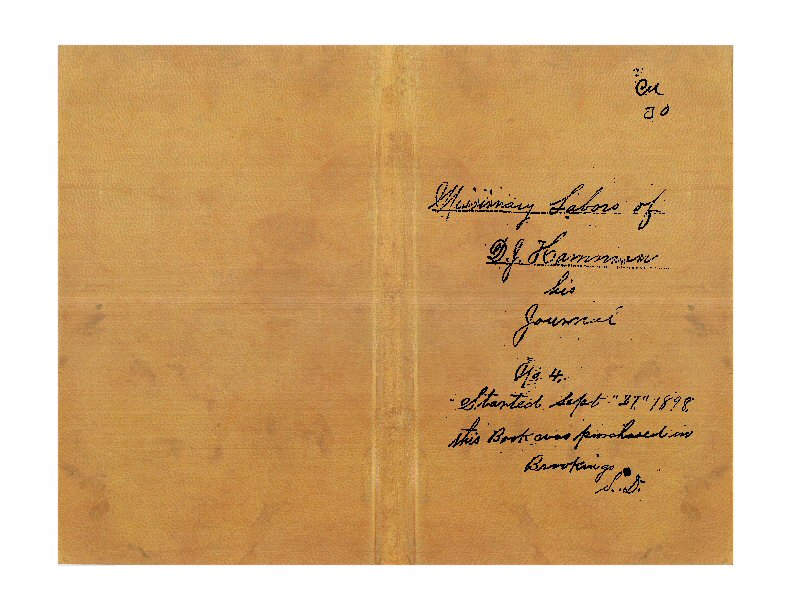 Missionary Labors of
D.J. Hamman
his
Journal
No 4.
Started Sept "27" 1898
this Book was purchased in
Brookings
S.D.